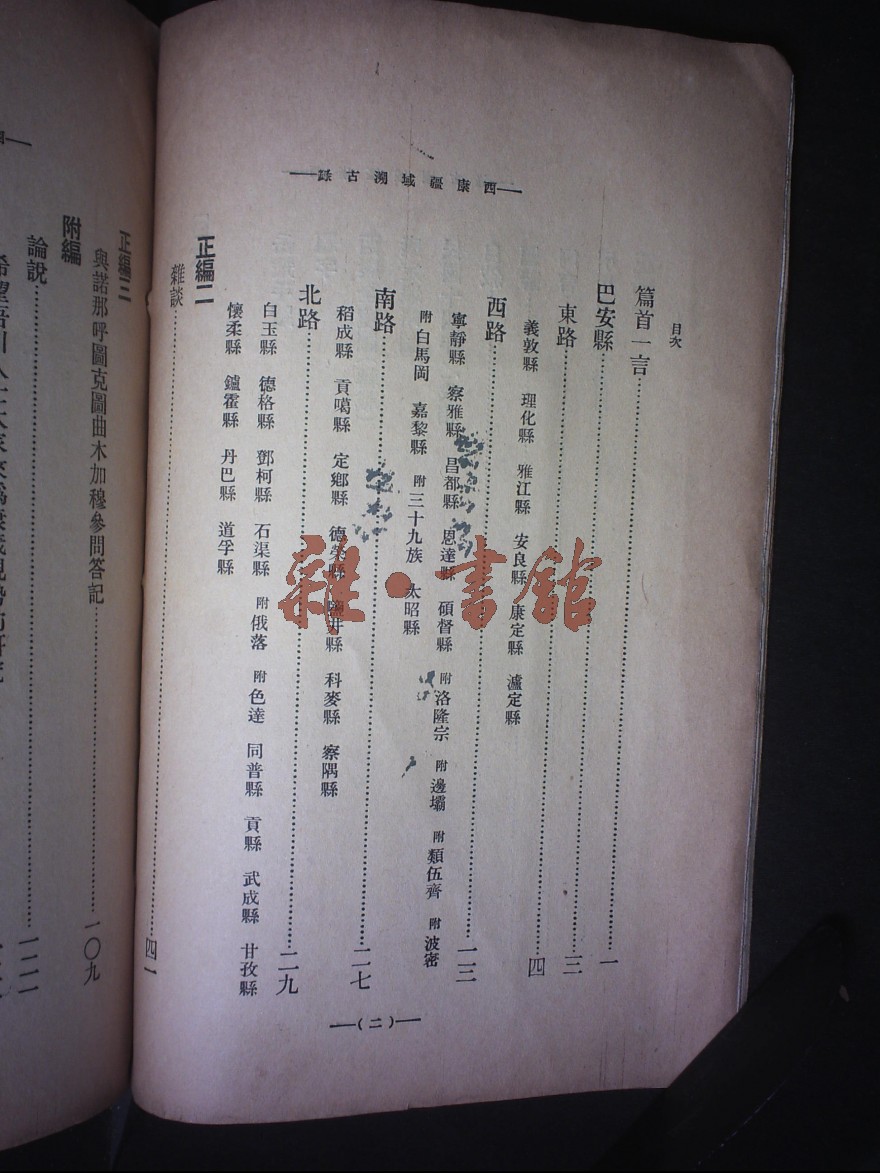 西康疆域溯古錄
目次
篇首一言……一
巴安縣……三
東路……四
義敦縣 理化縣 雅江縣 安良縣 康定縣 瀘定縣
西路……一三
寧靜縣 察雅縣 昌都縣 恩達縣 碩督縣 附洛隆宗 附邊壩 附類伍齊 附波密
附白馬岡 嘉黎縣 附三十九族 太昭縣
南路……二七
稻成縣 貢噶縣 定鄉縣 德榮縣 鹽井縣 科麥縣 察隅縣
北路……二九
白玉縣 德格縣 鄧柯縣 石渠縣 附俄落 附色達 同普縣 貢縣 武成縣 甘孜縣
懷柔縣 鑪霍縣 丹巴縣 道孚縣
正編二
雜談……四一
—(二)—
正編三
與諾那呼圖克圖曲木加穆參問答記……一〇九
附編
論說……一二一
雜·書館